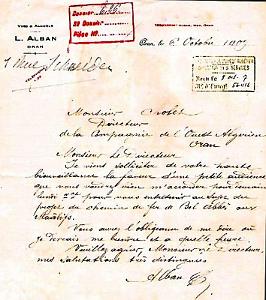 VINS & ALCOOLS
L. ALBAN
ORAN
Dossier 626
Sr Dossier
Pièce No
Oran, le 6 Octobre 1907
Monsieur
Directeur
de la Compagnie de l'Ouest Algérien
Oran
Monsieur le Directeur
Je viens solliciter de votre haute
bienveillance la faveur d'une petite audience
que vous voudrez bien m'accorder pour
lundi pour vous entretenir au sujet du
projet du chemin de fer de Bel Abbès aux
Vous auriez l'obligeance de me dire où
je devrais me rendre et à quelle heure
Veuillez agréer Monsieur le Directeur
mes salutations très distinguées
Alban